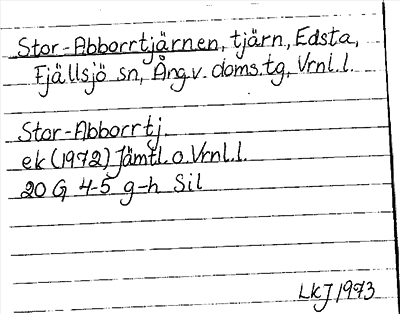 Stor-Abborrtjärnen, tjärn, Edsta,
Fjällsjö sn, Ång.v. doms.tg, Vrnl.l.
Stor-Abborrtj.
ek (1972) Jämtl. o. Vrnl.l.
20 G 4-5 g-h Sil
LkJ 1973